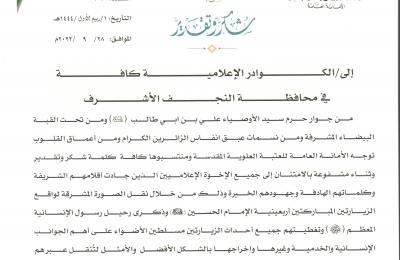 التاريخ: ١/ربيع الأول/١٤٤٤هـ
شكر وتقدير
الموافق: ٢٠٢٢ / ٩ / ٢٨م
إلى/الكوادر الإعلامية كافة
في محافظة النجف الأشرف
من جوار حرم سيد الأوصياء علي بن ابي طالب ومن تحت القبة
البيضاء المشرفة ومن نسمات عبق انفاس الزائرين الكرام ومن أعماق القلوب
توجه الأمانة العامة للعتبة العلوية المقدسة ومنتسبوها كافة كلمة شكر وتقدير
وثناء مشفوعة بالامتنان إلى جميع الإخوة الاعلاميين الذين جادت اقلامهم الشريفة
وكلماتهم الهادفة وجهودهم الخيرة وذلك من خلال نقل الصورة المشرقة لواقع
الزيارتين المباركتين أربعينية الإمام الحسين وذكرى رحيل رسول الإنسانية
المعظم وتغطيتهم جميع أحداث الزيارتين مسلطين الأضواء على أهم الجوانب
الإنسانية والخدمية وغيرها واخراجها بالشكل الأفضل والأمثل لتُنقل عبرهم